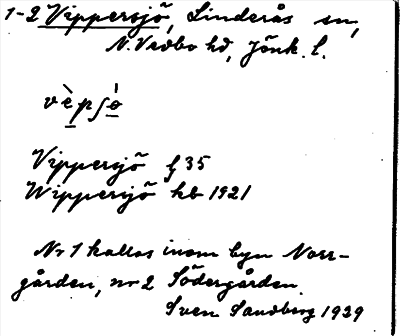 1-2 Vippersjö, Linderås sn,
N. Vedbo hd, Jönk. l.
vè̱pʃǿ̱
Vippersjö j 35
Wippersjö hb 1921
Nr 1 kallas inom byn Norr-
gården, nr 2 Södergården.
Sven Sandberg 1929